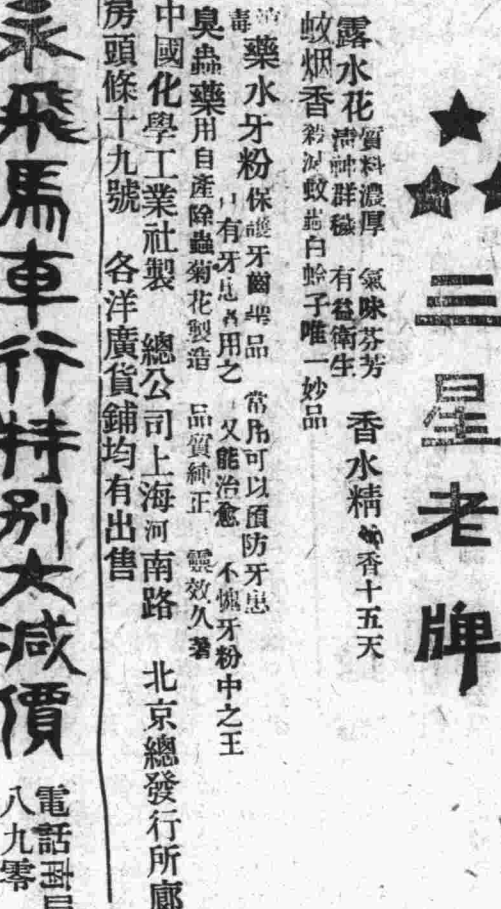 三星老牌
露水花 質料濃厚 氣味芬芳 群穢 有益衛生 香水精 香十五天
蚊烟香 殺滅蚊蟲白蛉子唯一妙品
消毒藥水牙粉 保護牙齒聖品 常用可以預防牙患
有牙患者用之 又能治愈 不愧牙粉中之王
臭蟲藥用自產除蟲菊花製造 品質純正 靈效久著
中國化學工業社製 總公司上海河南路 北京總發行所廊
房頭條十九號 各洋廣貨鋪均有出售
永飛馬車行特別大減價
電話南局
八九零